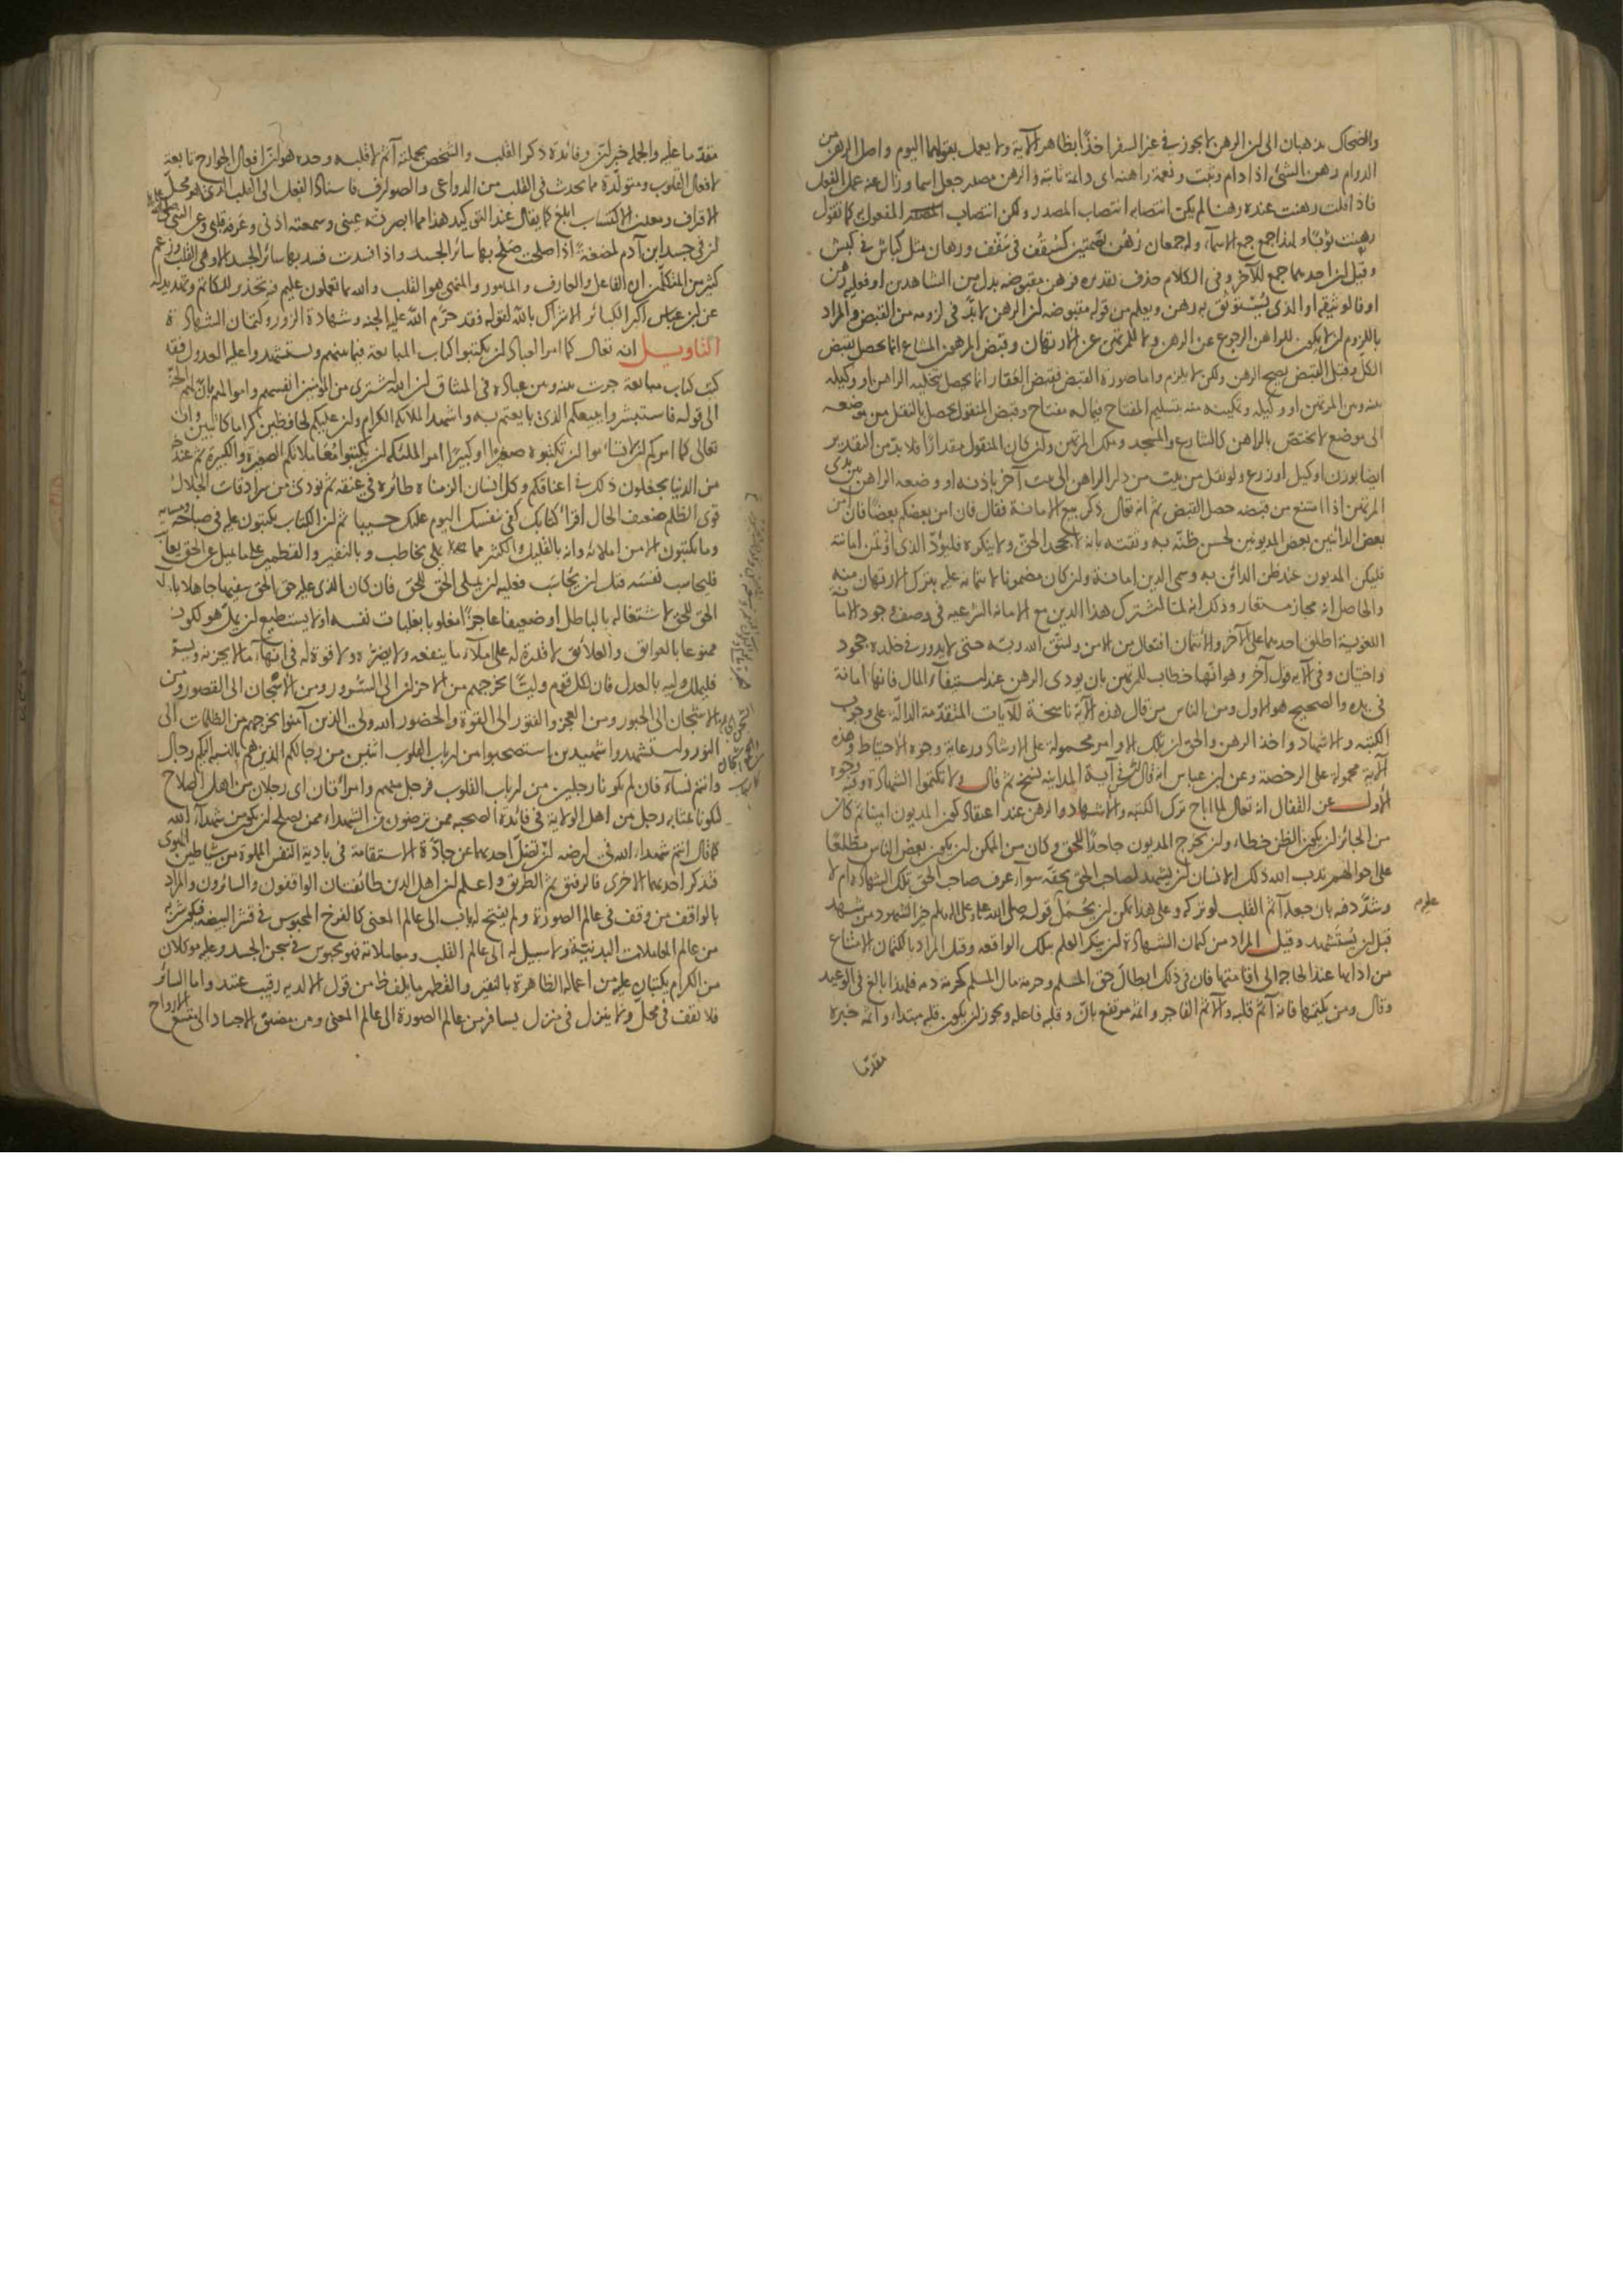 والضحاك يذهبان الى ان الرهن لا يجوز في غير السفر اخذا بظاهر الآية ولا يعمل بقولهما اليوم واصل الرهن من
الدوام رهن الشئ اذا دام وثبت ونعمة راهنة اى دائمة ثابتة والرهن مصدر جعل اسما وزال عنه عمل الفعل
فاذا قلت رهنت عنده رهنا لم يكن انتصابه انتصاب المصدر ولكن انتصاب المفعول به كما تقول
رهنت ثوبا ولهذا جمع جمع الاسماء وله جمعان رُهُن بضمتين كسُقُف في سَقْف ورهان مثل كباش في كبش
وقيل ان احدهما جمع للآخر وفى الكلام حذف تقديره فرهن مقبوضة بدل من الشاهدين او فعليه رهن
او فالوثيقة او الذى يُستوثق به رهن ويعلم من قوله مقبوضة ان الرهن لا بدّ في لزومه من القبض والمراد
باللزوم ان لا يكون للراهن الرجوع عن الرهن ولا للمرتهن عن الارتهان وقبض المرهون المشاع انما يحصل بقبض
الكل وقبل القبض يصح الرهن ولكن لا يلزم واما صورة القبض فقبض العقار انما يحصل بتخلية الراهن او وكيله
بينه وبين المرتهن او وكيله وتمكينه منه بتسليم المفتاح فيما له مفتاح وقبض المنقول يحصل بالنقل من موضعه
الى موضع لا يختص بالراهن كالشارع والمسجد وملك المرتهن وان كان المنقول مقدارا فلا بد من التقدير
ايضا بوزن او كيل او زرع ولو نقل من بيت من دار الراهن الى بيت آخر باذنه او وضعه الراهن بين يدى
المرتهن اذا امتنع من قبضه حصل القبض ثم انه تعالى ذكر بيع الامانة فقال فان امن بعضكم بعضا فان امن
بعض الدائنين بعض المديونين لحسن ظنّه به وثقته بانه لا يجحد الحقّ ولا ينكره فليؤدّ الذى اؤتمن امانته
فليكن المديون عند ظن الدائن به وسمى الدين امانة وان كان مضمونا لائتمانه عليه بترك الارتهان منه
والحاصل انه مجاز مستعار وذلك انه لما اشترك هذا الدين مع الامانة الشرعية فى وصف وجود الامانة
اللغوية اطلق احدهما على الآخر والائتمان افتعال من الامن وليتق الله ربه حتى لا يدور في خلده جحود
واختيان وفى الآية قول آخر وهو انها خطاب للمرتهن بان يودى الرهن عند استيفاء المال فانها امانة
في يده والصحيح هو الاول ومن الناس من قال هذه الآية ناسخة للآيات المتقدمة الدالّة على وجوب
الكتبة والاشهاد واخذ الرهن والحق ان تلك الاوامر محمولة على الارشاد ورعاية وجوه الاحتياط وهذه
الآية محمولة على الرخصة وعن ابن عباس انه قال ليس في آية المداينة نسخ ثم قال ولا تكتموا الشهادة وفيه وجوه
الاول عن القفال انه تعالى لما اباح ترك الكتبة والاشهاد والرهن عند اعتقاد كون المديون امينا ثم كان
من الجائز ان يكون الظن خطاء وان يخرج المديون جاحدا للحق وكان من الممكن ان يكون بعض الناس مطّلعا
على حوالهم ندب الله ذلك الانسان ان يشهد لصاحب الحق بحقه سواء عرف صاحب الحق تلك الشهادة ام لا
وشدّد فيه بان جعله آثم القلب لو تركه وعلى هذا يمكن ان يُحمَل قوله صلى الله عليه وعلى آله وسلم خير الشهود من شهد
قبل ان يُستَشهد وقيل المراد من كتمان الشهادة ان ينكر العلم بتلك الواقعة وقيل المراد بالكتمان الامتناع
من ادائها عند الحاجة الى اقامتها فان في ذلك ابطال حق المسلم وحرمة مال المسلم كحرمة دمه فلهذا بالغ فى الوعيد
وقال ومن يكتمها فانه آثم قلبه والآثم الفاجر وآثم مرتفع بانّ وقلبه فاعله ويجوز ان يكون قلبه مبتداء وآثم خبره
مقدما
مقدّما عليه والجملة خبر انّ وفائدة ذكر القلب والشخص بجملته آثم لا قلبه وحده هو ان افعال الجوارح تابعة
لافعال القلوب ومتولّدة مما يحدث في القلب من الدواعى والصوارف فاسناد الفعل الى القلب الذى هو محل
الاقتراف ومعدن الاكتساب ابلغ كما يقال عند التوكيد هذا مما ابصرته عينى وسمعته اذنى وعرفه قلبى وعن النبى
ان في جسد ابن آدم لمضغة اذا صلحت صلح بها سائر الجسد واذا فسدت فسد بها سائر الجسد الا وهى القلب وزعم
كثير من المتكلّمين ان الفاعل والعارف والمامور والمنهى هو القلب والله بما تعملون عليم فيه تحذير للكاتم وتهديد له
عن ابن عباس اكبر الكبائر الاشراك بالله لقوله فقد حرّم الله عليه الجنة وشهادة الزور وكتمان الشهادة
التاويـل انه تعالى كما امر العباد ان يكتبوا كتاب المبايعة فيما بينهم ويستشهدوا عليه العدول فقد
كتب كتاب مبايعة جرت بينه وبين عباده في الميثاق ان الله اشترى من المؤمنين انفسهم واموالهم بان لهم الجنّة
الى قوله فاستبشروا ببيعكم الذى بايعتم به واشهد الملائكة الكرام وان عليكم لحافظين كراما كاتبين وان
تعالى كما امركم ان لا تساموا ان تكتبوه صغيرا او كبيرا امر الملئكة ان يكتبوا معاملاتكم الصغيرة والكبيرة ثم عند
من الدنيا يجعلون ذلك في اعناقكم وكل انسان الزمناه طائره في عنقه ثم نودى من سرادقات الجلال
قوى الظلم ضعيف الحال اقرأ كتابك كفى بنفسك اليوم عليك حسيبا ثم ان الكتاب يكتبون عليه في صباحه
وما يكتبون الا من املائه وانه بالقليل والكثير مما يملى يخاطب وبالنقير والقطمير عما يميل عن الحق يعاتب
فليحاسب نفسه قبل ان يُحاسَب فعليه ان يملى الحق للحق فان كان الذى عليه حق الحق سفيها جاهلا
الحق للحق لاشتغاله بالباطل او ضعيفا عاجزا مغلوبا بغلبات نفسه او لا يستطيع ان يملّ هو لكونه
ممنوعا بالعوائق والعلائق لا قدرة له على املاء ما ينفعه ولا يضرّه ولا قوة له في انهاء ما لا يحزنه ويسرّ
فليملل وليه بالعدل فان لكل قوم وليّا يخرجهم من الاحزان الى السرور ومن الاشجان الى القصور ومن
الاستجان الى الحبور ومن العجز والفتور الى القوة والحضور الله ولى الذين آمنوا يخرجهم من الظلمات الى
النور واستشهدوا شهيدين استصحبوا من ارباب القلوب اثنين من رجالكم الذين هم بالنسبة اليكم رجال
وانتم نساء فان لم يكونا رجلين من ارباب القلوب فرجل منهم وامرأتان اى رجلان من اهل الصلاح
ليكونا بمثابة رجل من اهل الولاية في فائدة الصحبة ممن ترضون من الشهداء ممن يصلح ان يكون من شهداء الله
كما قال انتم شهداء الله في ارضه ان تضلّ احديهما عن جادّة الاستقامة في بادية النفس المملوة من شياطين الهوى
فتذكر احديهما الاخرى فالرفيق ثم الطريق واعلم ان اهل الدين طائفتان الواقفون والسائرون والمراد
بالواقف من وقف في عالم الصورة ولم يفتح له باب الى عالم المعنى كالفرخ المحبوس في قشر البيضة فيكون شربه
من عالم المعاملات البدنيّة ولا سبيل له الى عالم القلب ومعاملاته فهو محبوس في سجن الجسد وعليه موكلان
من الكرام يكتبان عليه من اعماله الظاهرة بالنقير والقطمير ما يلفظ من قول الا لديه رقيب عتيد واما السائر
فلا يقف فى محل ولا ينزل في منزل يسافر من عالم الصورة الى عالم المعنى ومن مضيق الاجساد الى متسع الارواح